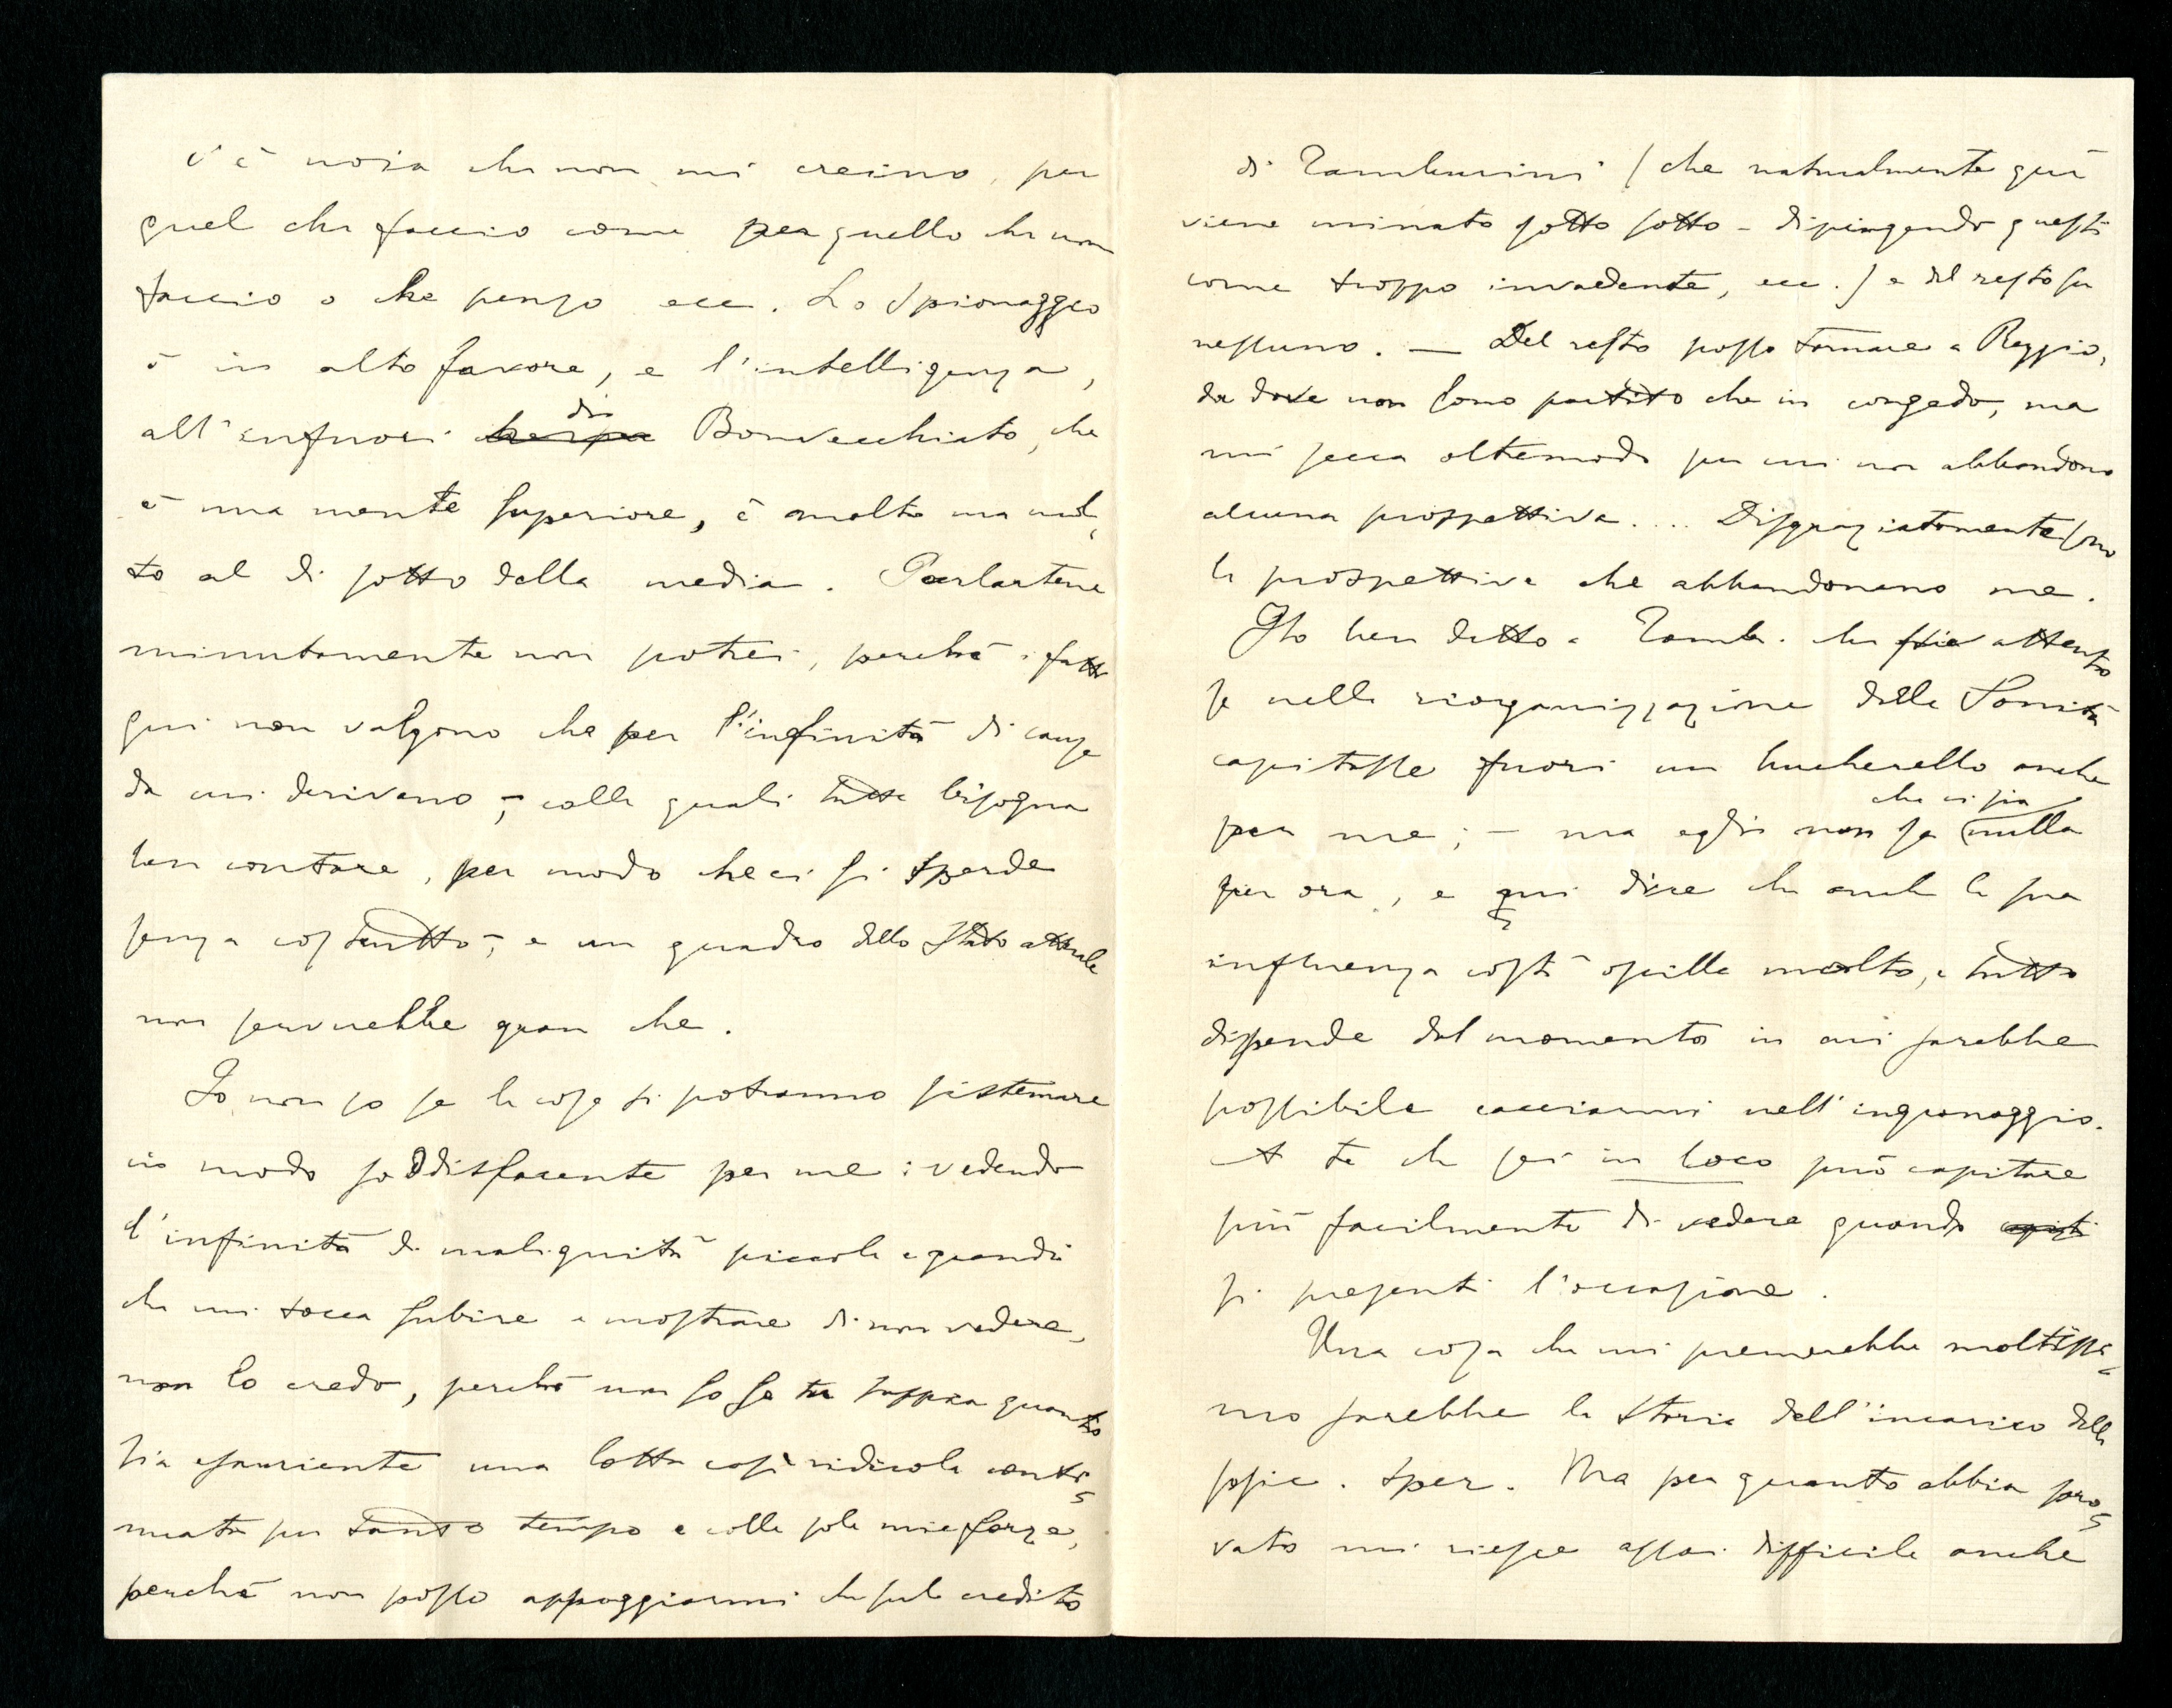 v'è noia che non mi creino, per
quel che faccio come per quello che non
faccio o che penso ecc. Lo Spionaggio
è in alto favore, e l'intelligenza,
all'infuori di Bonvecchiato, che
è una mente superiore, è molto ma mol-
to al di sotto della media. Parlartene
minutamente non potrei, perchè i fatti
qui non valgono che per l'infinità di cause
da cui derivano, – colle quali tutte bisogna
ben contare, per modo che ci si sperde
senza costrutto –, e un quadro dello stato attuale
non servirebbe gran che.
Io non so se le cose si potranno sistemare
in modo soddisfacente per me: vedendo
l'infinità di malignità piccole e grandi
che mi tocca subire e mostrare di non vedere,
non lo credo, perchè non so se tu sappia quanto
sia esauriente una lotta così ridicola conti-
nuata per tanto tempo e colle sole mie forze,
perchè non posso appoggiarmi che sul credito
di Tamburini (che naturalmente qui
viene minato sotto sotto – dipingendo questi
come troppo invadente, ecc.) e del resto su
nessuno. — Del resto posso tornare a Reggio,
da dove non sono partito che in congedo, ma
mi secca oltremodo per cui non abbandono
alcuna prospettiva.... Disgraziatamente sono
le prospettive che abbandonano me.
Ho ben detto a Tamb. che stia attento
se nella riorganizzazione della Sanità
capitasse fuori un bucherello anche
per me; – ma egli non sa che ci sia nulla
per ora, e mi dice che anche la sua
influenza costì oscilla molto, e tutto
dipende dal momento in cui sarebbe
possibile cacciarmi nell'ingranaggio.
A te che sei in loco può capitare
più facilmente di vedere quando
si presenti l'occasione.
Una cosa che mi premerebbe moltissi-
mo sarebbe la storia dell'incarico della
psic. sper. Ma per quanto abbia pro-
vato mi riesce assai difficile anche